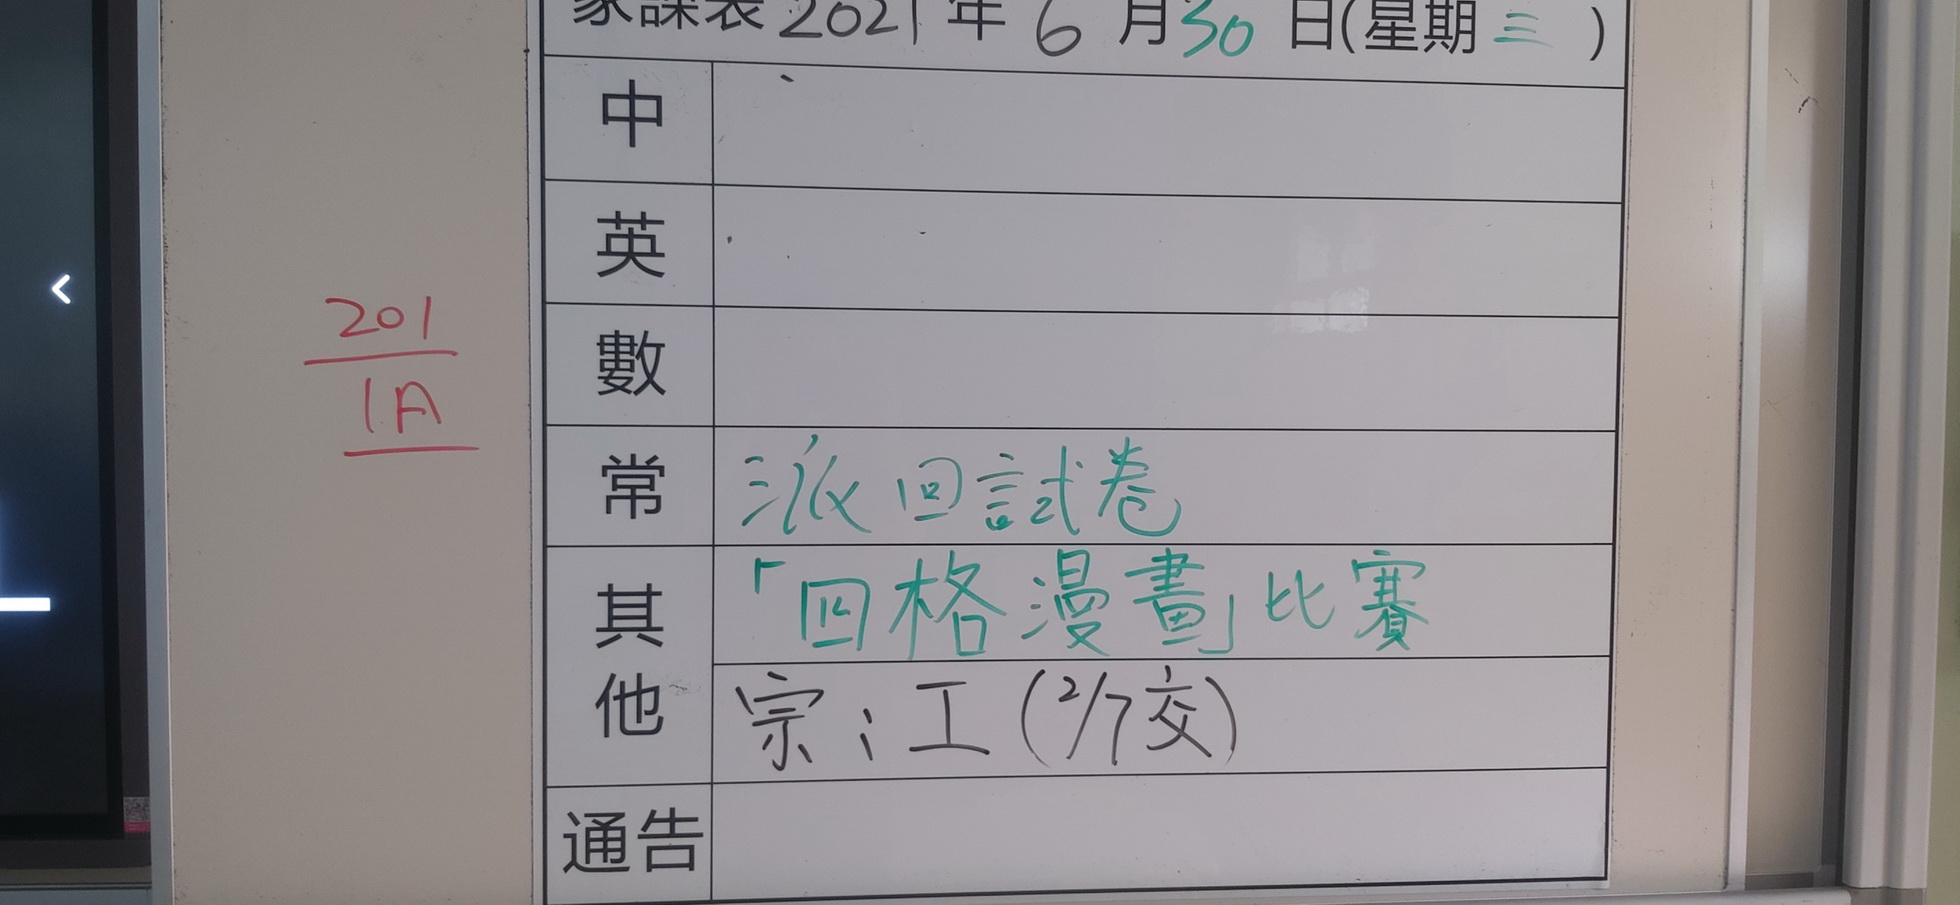 家課表 2021 年 6 月 30 日(星期 三 )
中
英
數
常 派回試卷
其他 「四格漫畫」比賽
宗；工(2/7交)
通告
201
1A